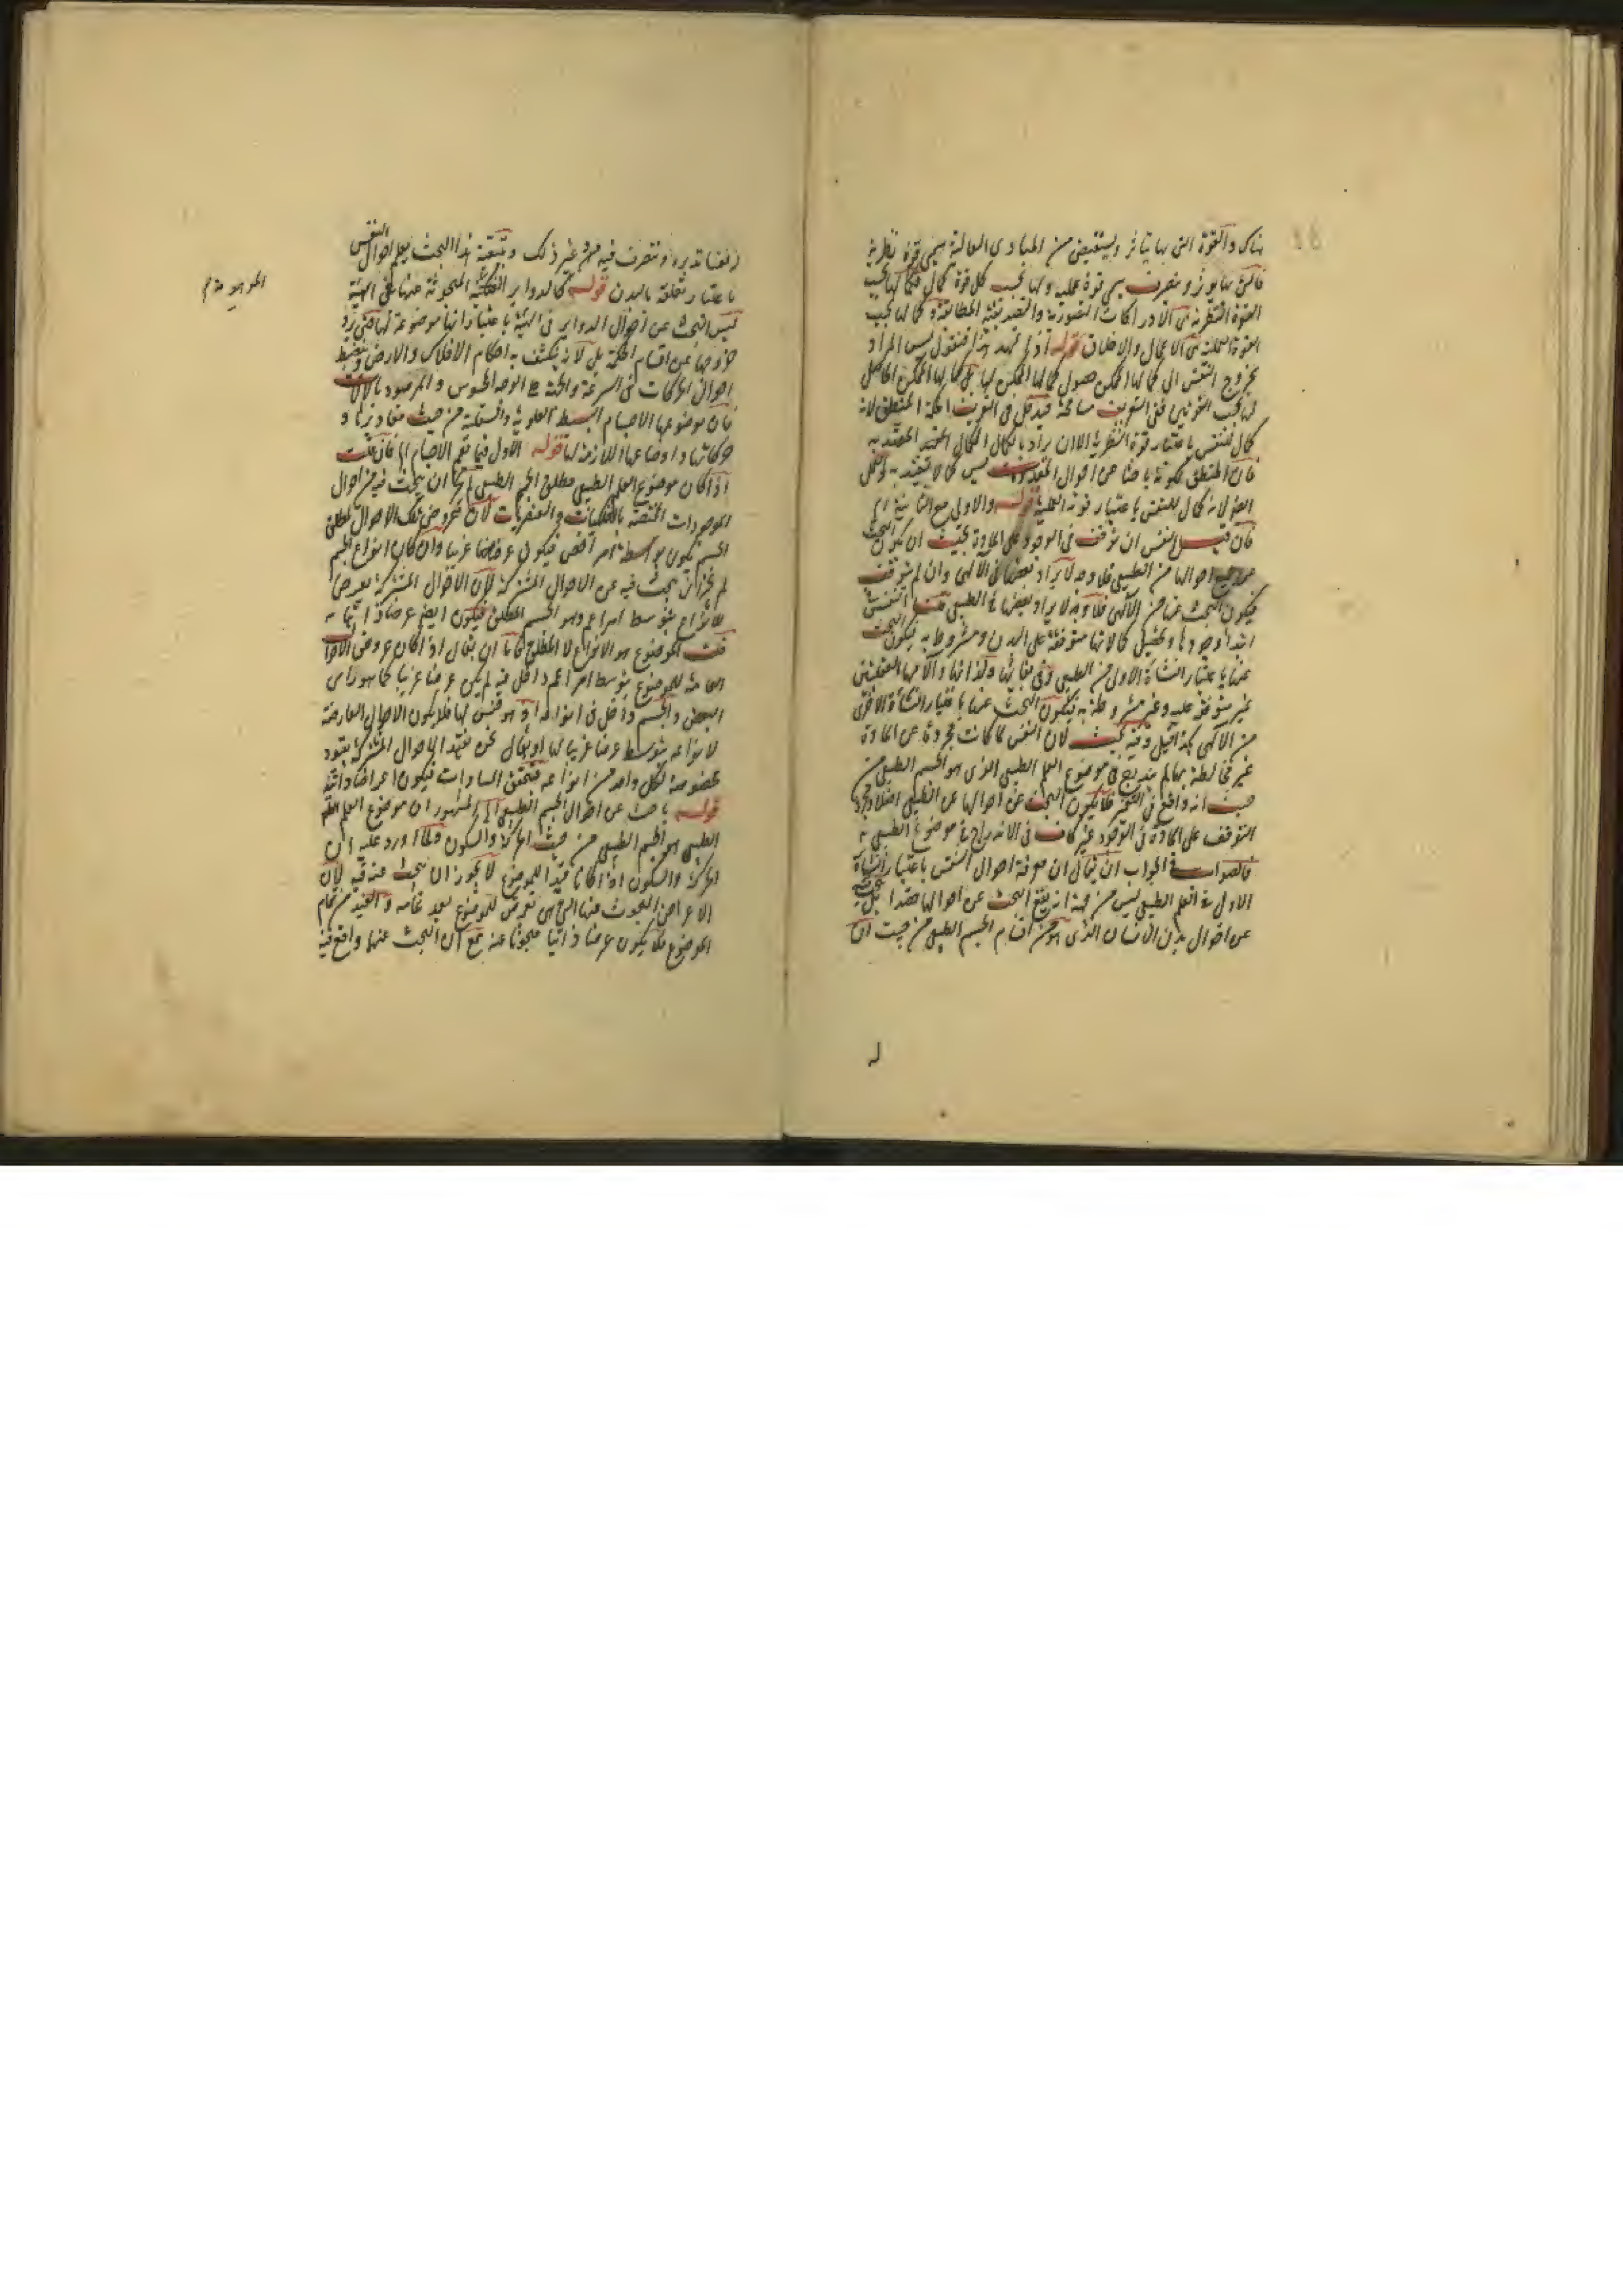 هناك والقوة التى بها يتاثر ويستفيض من المبادى العالية يسمى قوة نظرية
فالتى بها يؤثر ويتصرف يسمى قوة عملية ولها بحسب كل قوة كمال فكمالها بحسب
القوة النظرية هى الادراكات التصورية والتصديقية المطابقة وكمالها بحسب
القوة العملية هى الاعمال والاخلاق قوله اذا تمهد هذا فنقول ليس المراد
بخروج النفس الى كمالها الممكن حصول كمالها الممكن لها بل كمالها الممكن الحاصل
لها بحسب القوتين ففى التعريف مسامحة فيدخل فى التعريف الحكمة المنطق لانه
كمال للنفس باعتبار قوة النظرية الا ان يراد بالكمال الكمال المعتد به
فان المنطق لكونه باحثا عن احوال المعقولات ليس كمالا يعتد به
لانه كمال للنفس باعتبار قوته العملية قوله والاولى مع الثانية
فان قيل النفس ان توقفت فى الوجود على المادة بحيث ان يكون البحث
عن جميع احوالها من الطبيعى فلا وجه لايراد بعضها فى الالهى وان لم يتوقف
فيكون البحث عنها من الالهى فلا وجه لايراد بعضها فى الطبيعى قلت النفس
ابتداء وجودها وتحصيل كمالاتها متوقفة على البدن ومشروطة به فيكون البحث
عنها باعتبار النشأة الاولى من الطبيعى وفى بقائها ولذاتها وآلامها العقليتين
غير متوقفة عليه وغير مشروطة به فيكون البحث عنها باعتبار النشأة الاخرى
من الالهى كذا قيل وفيه بحث لان النفس لما كانت مجردة عن المادة
غير مخالطة بها لم يندرج فى موضوع العلم الطبيعى الذى هو الجسم الطبيعى من
حيث انه واقع فى التغير فلا يكون البحث عن احوالها من الطبيعى اصلا ومجرد
التوقف على المادة فى الوجود غير كاف فى الاندراج فى موضوع الطبيعى
فالصواب فى الجواب ان يقال ان معرفة احوال النفس باعتبار النشأة
الاولى فى العلم الطبيعى ليس من جهة انه يقع البحث عن احوالها قصدا بل يبحث فيه
عن احوال بدن الانسان الذى هو من اقسام الجسم الطبيعى من حيث ان
له
نفسا تدبره وتتصرف فيه من غير ذلك ويتبعه هذا البحث يعلم احوال النفس
باعتبار تعلقه بالبدن قوله كالدوائر الفلكية المبحوثة عنها فى الهيئة
ليس البحث عن احوال الدوائر فى الهيئة باعتبار انها موضوعة لها حتى يرد
خروجها عن اقسام الحكمة بل لانه يكشف به احكام الافلاك والارض وينضبط
احوال الحركات فى السرعة والجهة على الوجه المحسوس والمرصود بالالات
فان موضوعها الاجسام البسيطة العلوية والسفلية من حيث مقاديرها و
حركاتها واوضاعها اللازمة لها قوله الاول فيما يعم الاجسام الخ فان قلت
اذا كان موضوع العلم الطبيعى مطلق الجسم الطبيعى لم يجز ان يبحث فيه عن احوال
الموجودات المختصة بالفلكيات والعنصريات لان عروض تلك الاحوال لمطلق
الجسم يكون بواسطة امر اخص فيكون عرضا غريبا وان كان انواع الجسم
لم يجز ان يبحث فيه عن الاحوال المشتركة لان الاحوال المشتركة يعرض
للانواع بتوسط امر اعم وهو الجسم المطلق فيكون ايضا عرضا غريبا
قلت الموضوع هو الانواع لا المطلق فاما ان يقال اذا كان عروض الاحوال
العامة للموضوع بتوسط امر اعم داخل فيه لم يكن عرضا غريبا كما هو رأى
البعض والجسم داخل فى انواعه اذ هو جنس لها فلا يكون الاحوال العارضة
لانواعه بتوسطه عرضا غريبا لها او يقال نحن نقيد الاحوال المشتركة بقيود
مخصوصة لكل واحد من انواعه فيتحقق المساوات فيكون اعراضا ذاتية
قوله باحث عن احوال الجسم الطبيعى الخ المشهور ان موضوع العلم
الطبيعى هو الجسم الطبيعى من حيث الحركة والسكون ولما اورد عليه ان
الحركة والسكون اذا كانا قيدا للموضوع لا يجوز ان يبحث عنه فيه لان
الاعراض المبحوث عنها التى هى تعرض للموضوع بعد تمامه والقيد من تمام
الموضوع فلا يكون عرضا ذاتيا مبحوثا عنه مع ان البحث عنها واقع فيه